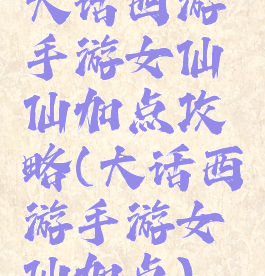 大话西游
手游女仙
仙加点攻
略(大话西
游手游女
仙加点)